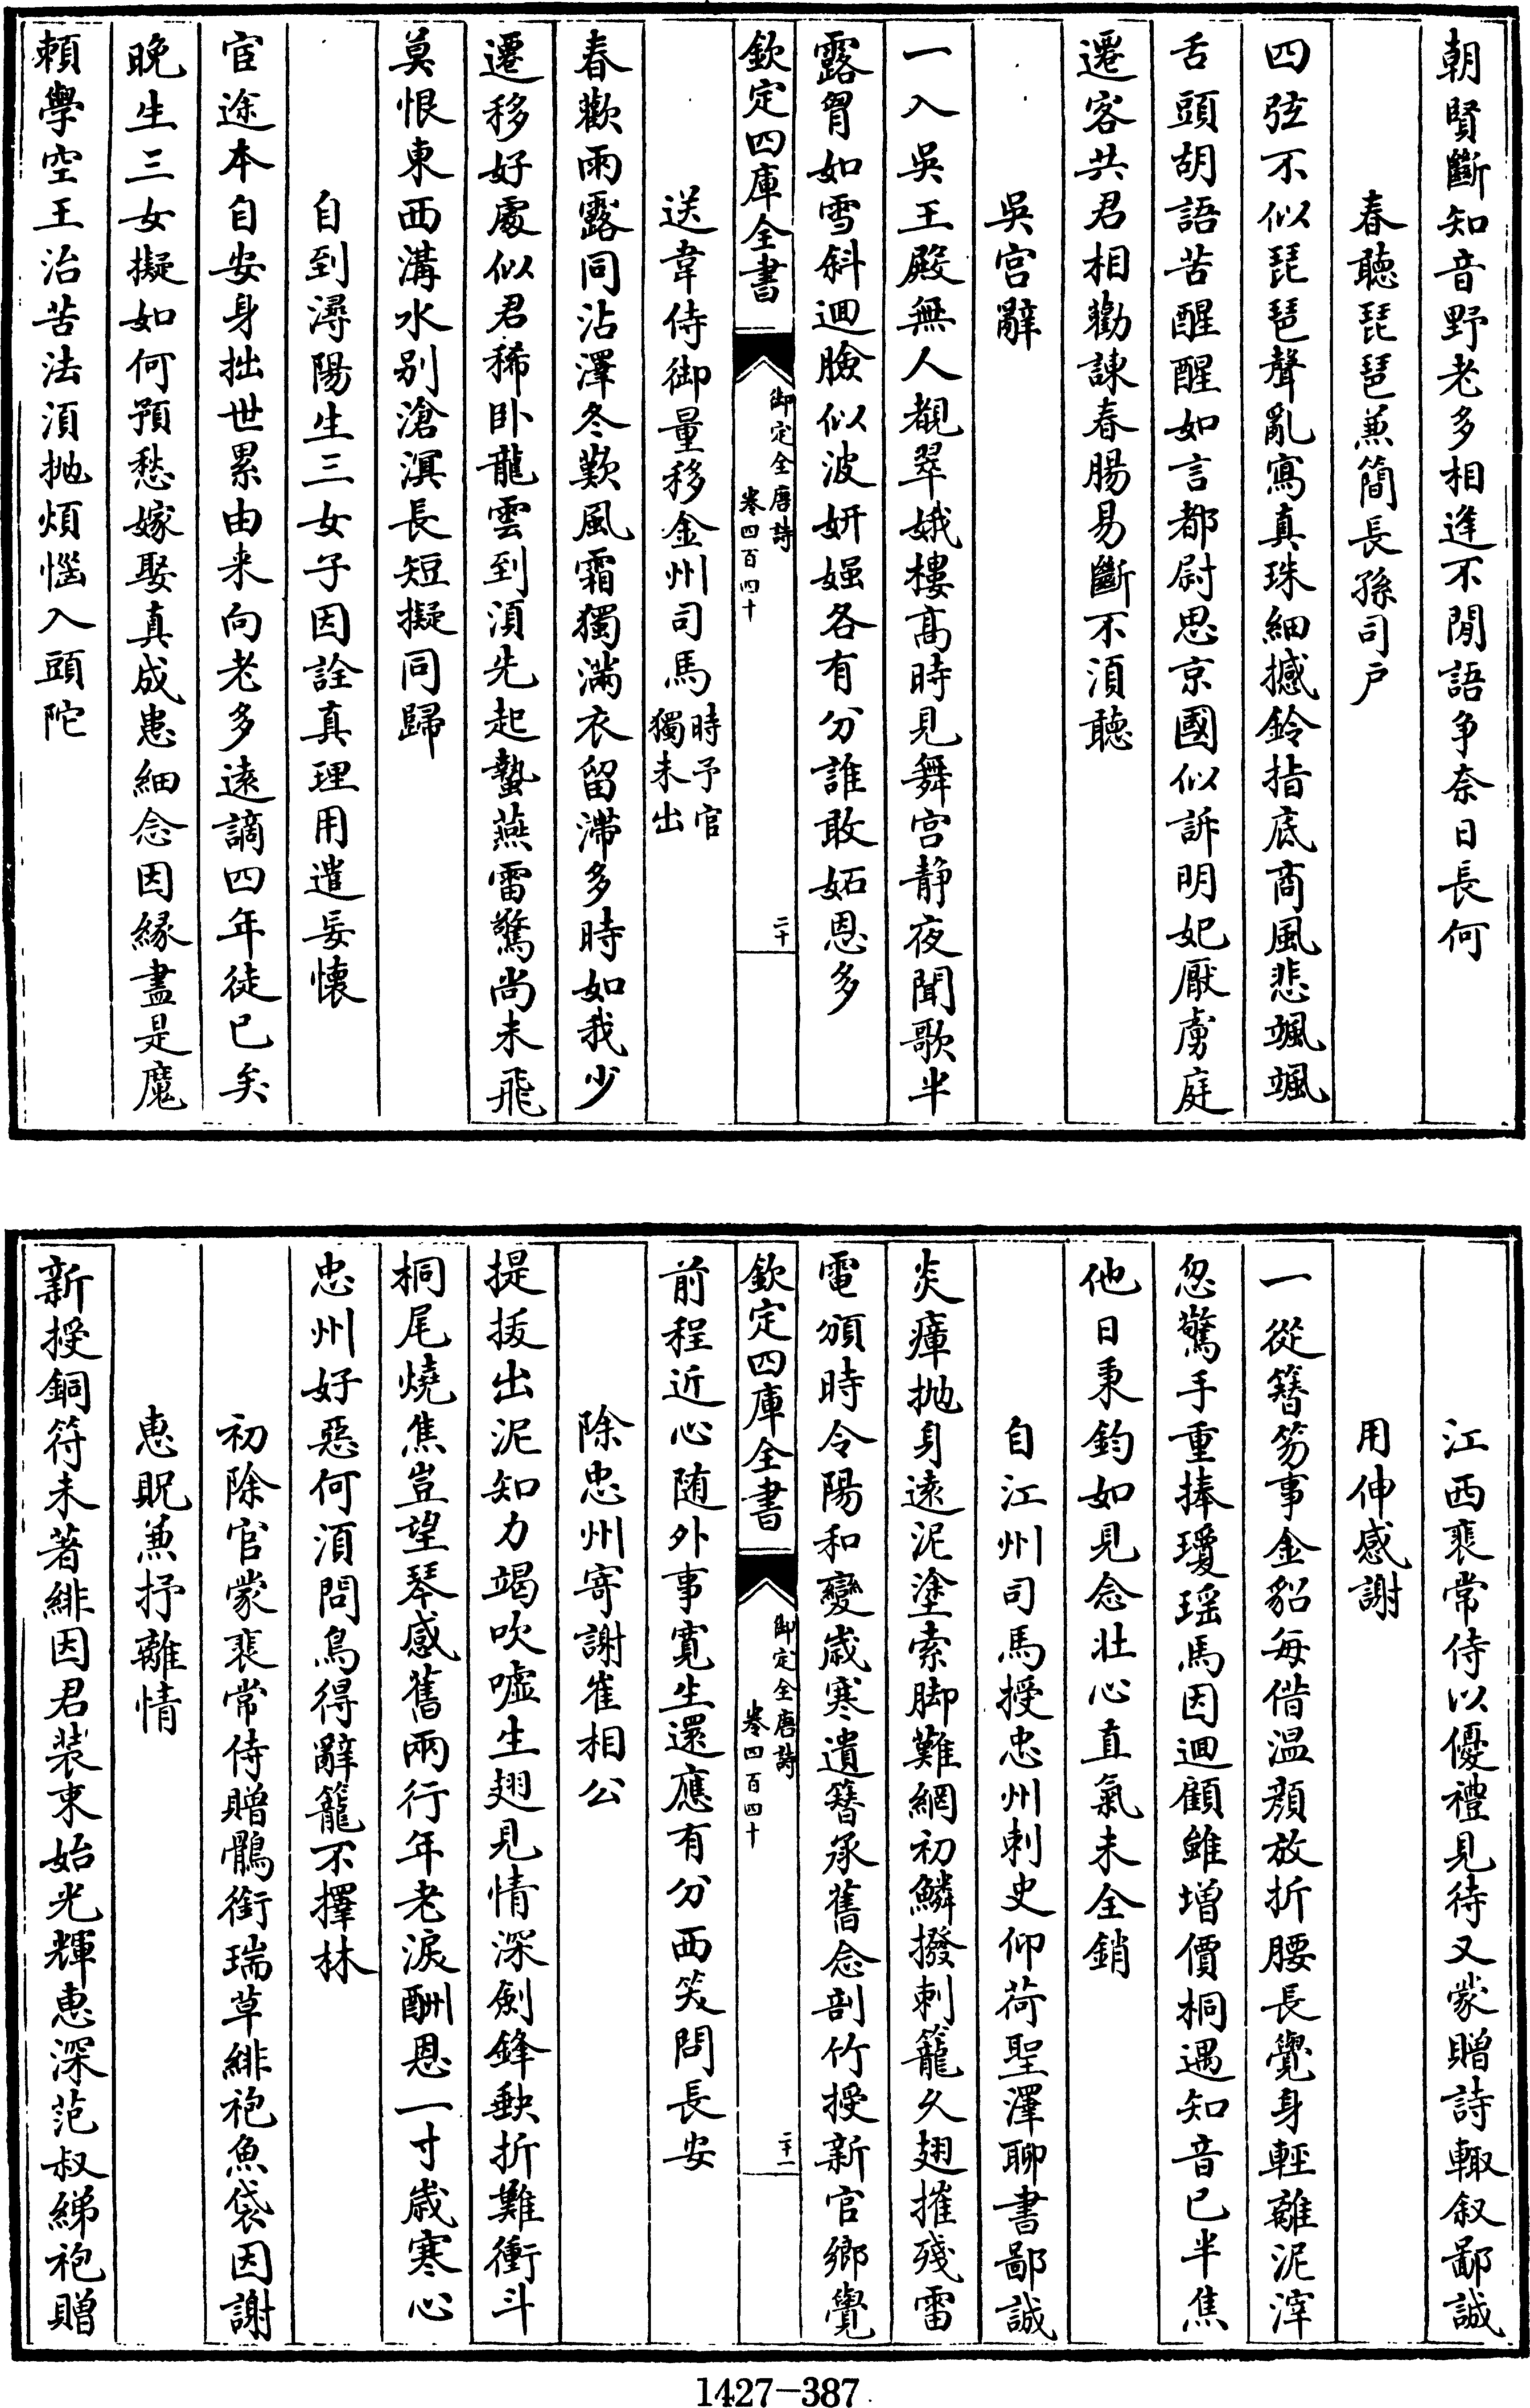 朝賢斷知音野老多相逢不閒語争奈日長何
春聽琵琶兼簡長孫司戸
四弦不似琵琶聲亂寫真珠細撼鈴指底商風悲颯颯
舌頭胡語苦醒醒如言都尉思京國似訴明妃厭虜庭
遷客共君相勸諫春腸易斷不須聽
吳宫辭
一入吳王殿無人覩翠娥樓高時見舞宫静夜聞歌半
露胷如雪斜迴臉似波妍媸各有分誰敢妬恩多
欽定四庫全書
御定全唐詩
卷四百四十
二十
送韋侍御量移金州司馬
時予官
獨未出
春歡雨露同沾澤冬歎風霜獨滿衣留滯多時如我少
遷移好處似君稀卧龍雲到須先起蟄燕雷驚尚未飛
莫恨東西溝水别滄溟長短擬同歸
自到潯陽生三女子因詮真理用遣妄懷
宦途本自安身拙世累由来向老多遠謫四年徒已矣
晚生三女擬如何預愁嫁娶真成患細念因緣盡是魔
賴學空王治苦法須抛煩惱入頭陀
江西裴常侍以優禮見待又蒙贈詩輙叙鄙誠
用伸感謝
一從簪笏事金貂每借温顔放折腰長覺身輕離泥滓
忽驚手重捧瓊瑶馬因迴顧雖增價桐遇知音已半焦
他日秉鈞如見念壯心直氣未全銷
自江州司馬授忠州刺史仰荷聖澤聊書鄙誠
炎瘴抛身遠泥塗索脚難網初鱗撥刺籠久翅摧殘雷
電頒時令陽和變歲寒遺簪承舊念剖竹授新官鄉覺
欽定四庫全書
御定全唐詩
卷四百四十
二十一
前程近心随外事寛生還應有分西笑問長安
除忠州寄謝崔相公
提拔出泥知力竭吹噓生翅見情深劍鋒缺折難衝斗
桐尾燒焦豈望琴感舊兩行年老淚酬恩一寸歲寒心
忠州好惡何須問鳥得辭籠不擇林
初除官蒙裴常侍贈鶻銜瑞草緋袍魚袋因謝
惠貺兼抒離情
新授銅符未著緋因君装束始光輝惠深范叔綈袍贈
1427-387